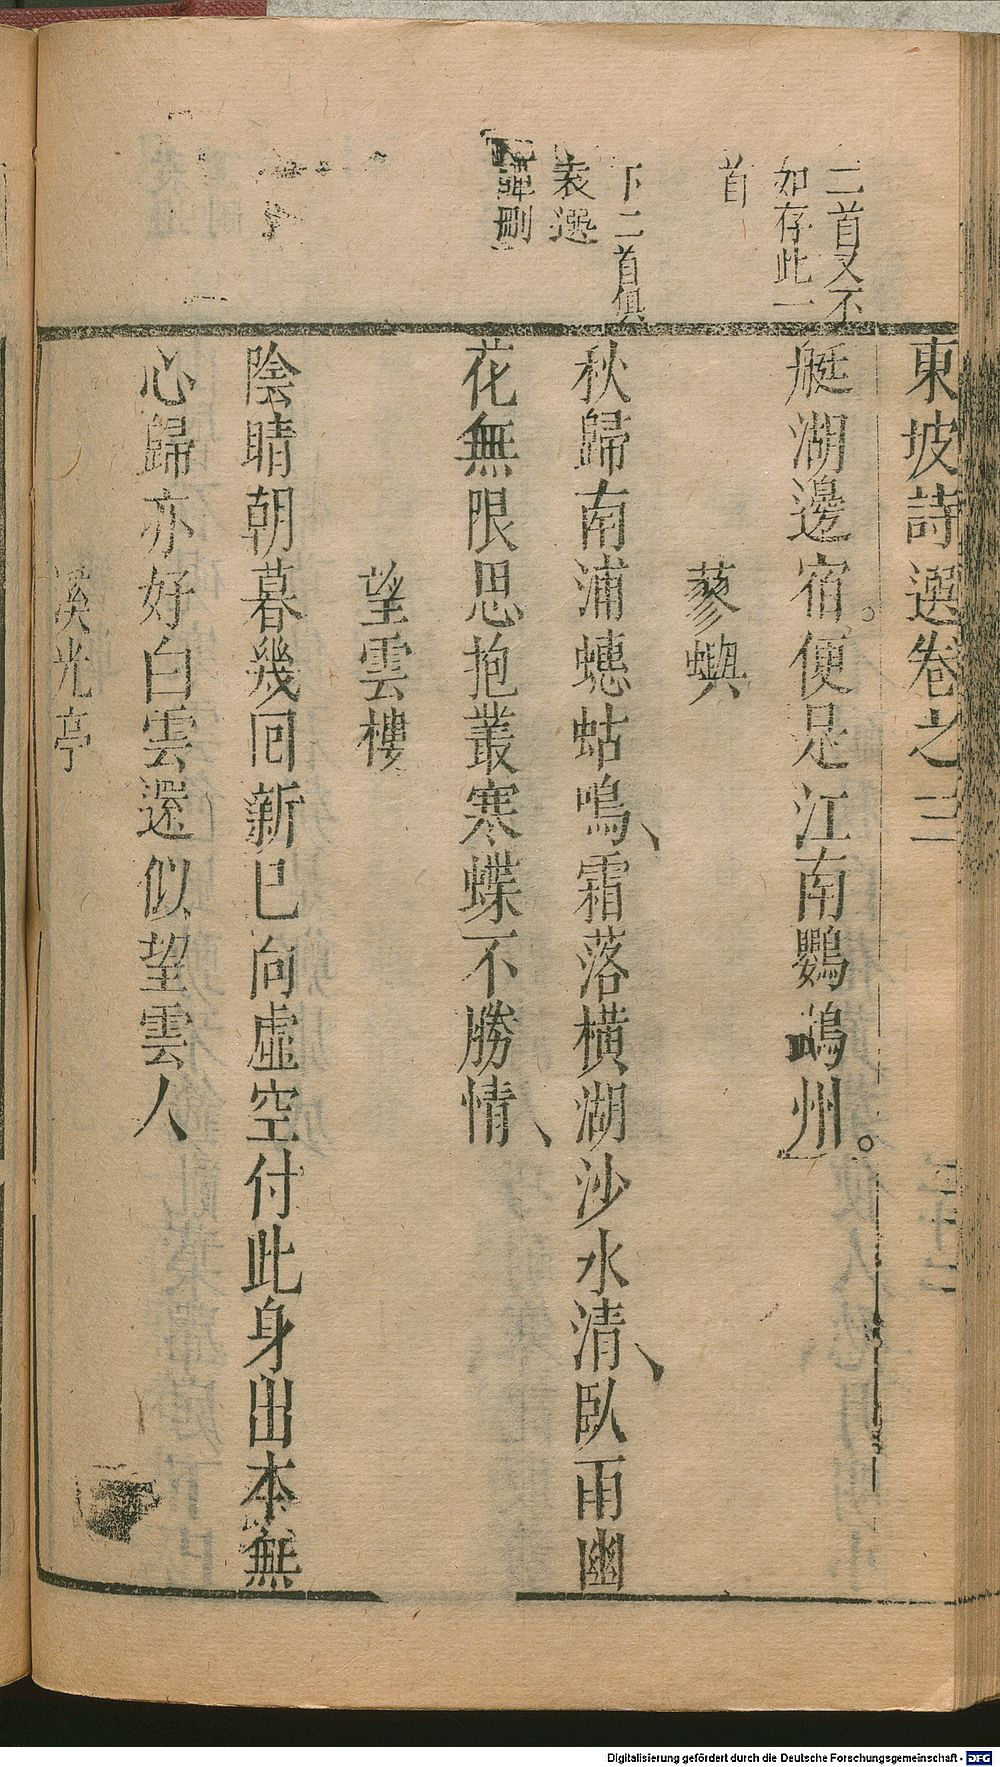 二首又不
如存此一
首
下二首俱
袁選
譚刪
東坡詩選卷之三
艇湖邊宿。便足江南鸚鵡州。
蓼嶼
秋歸南浦蟪蛄鳴、霜落橫湖沙水清、臥雨幽
花無限思抱叢寒蝶不勝情、
望雲樓
陰晴朝暮幾回新已向虛空付此身出本無
心歸亦好白雲還似望雲人
溪光亭
Digitalisierung gefördert durch die Deutsche Forschungsgemeinschaft - DFG